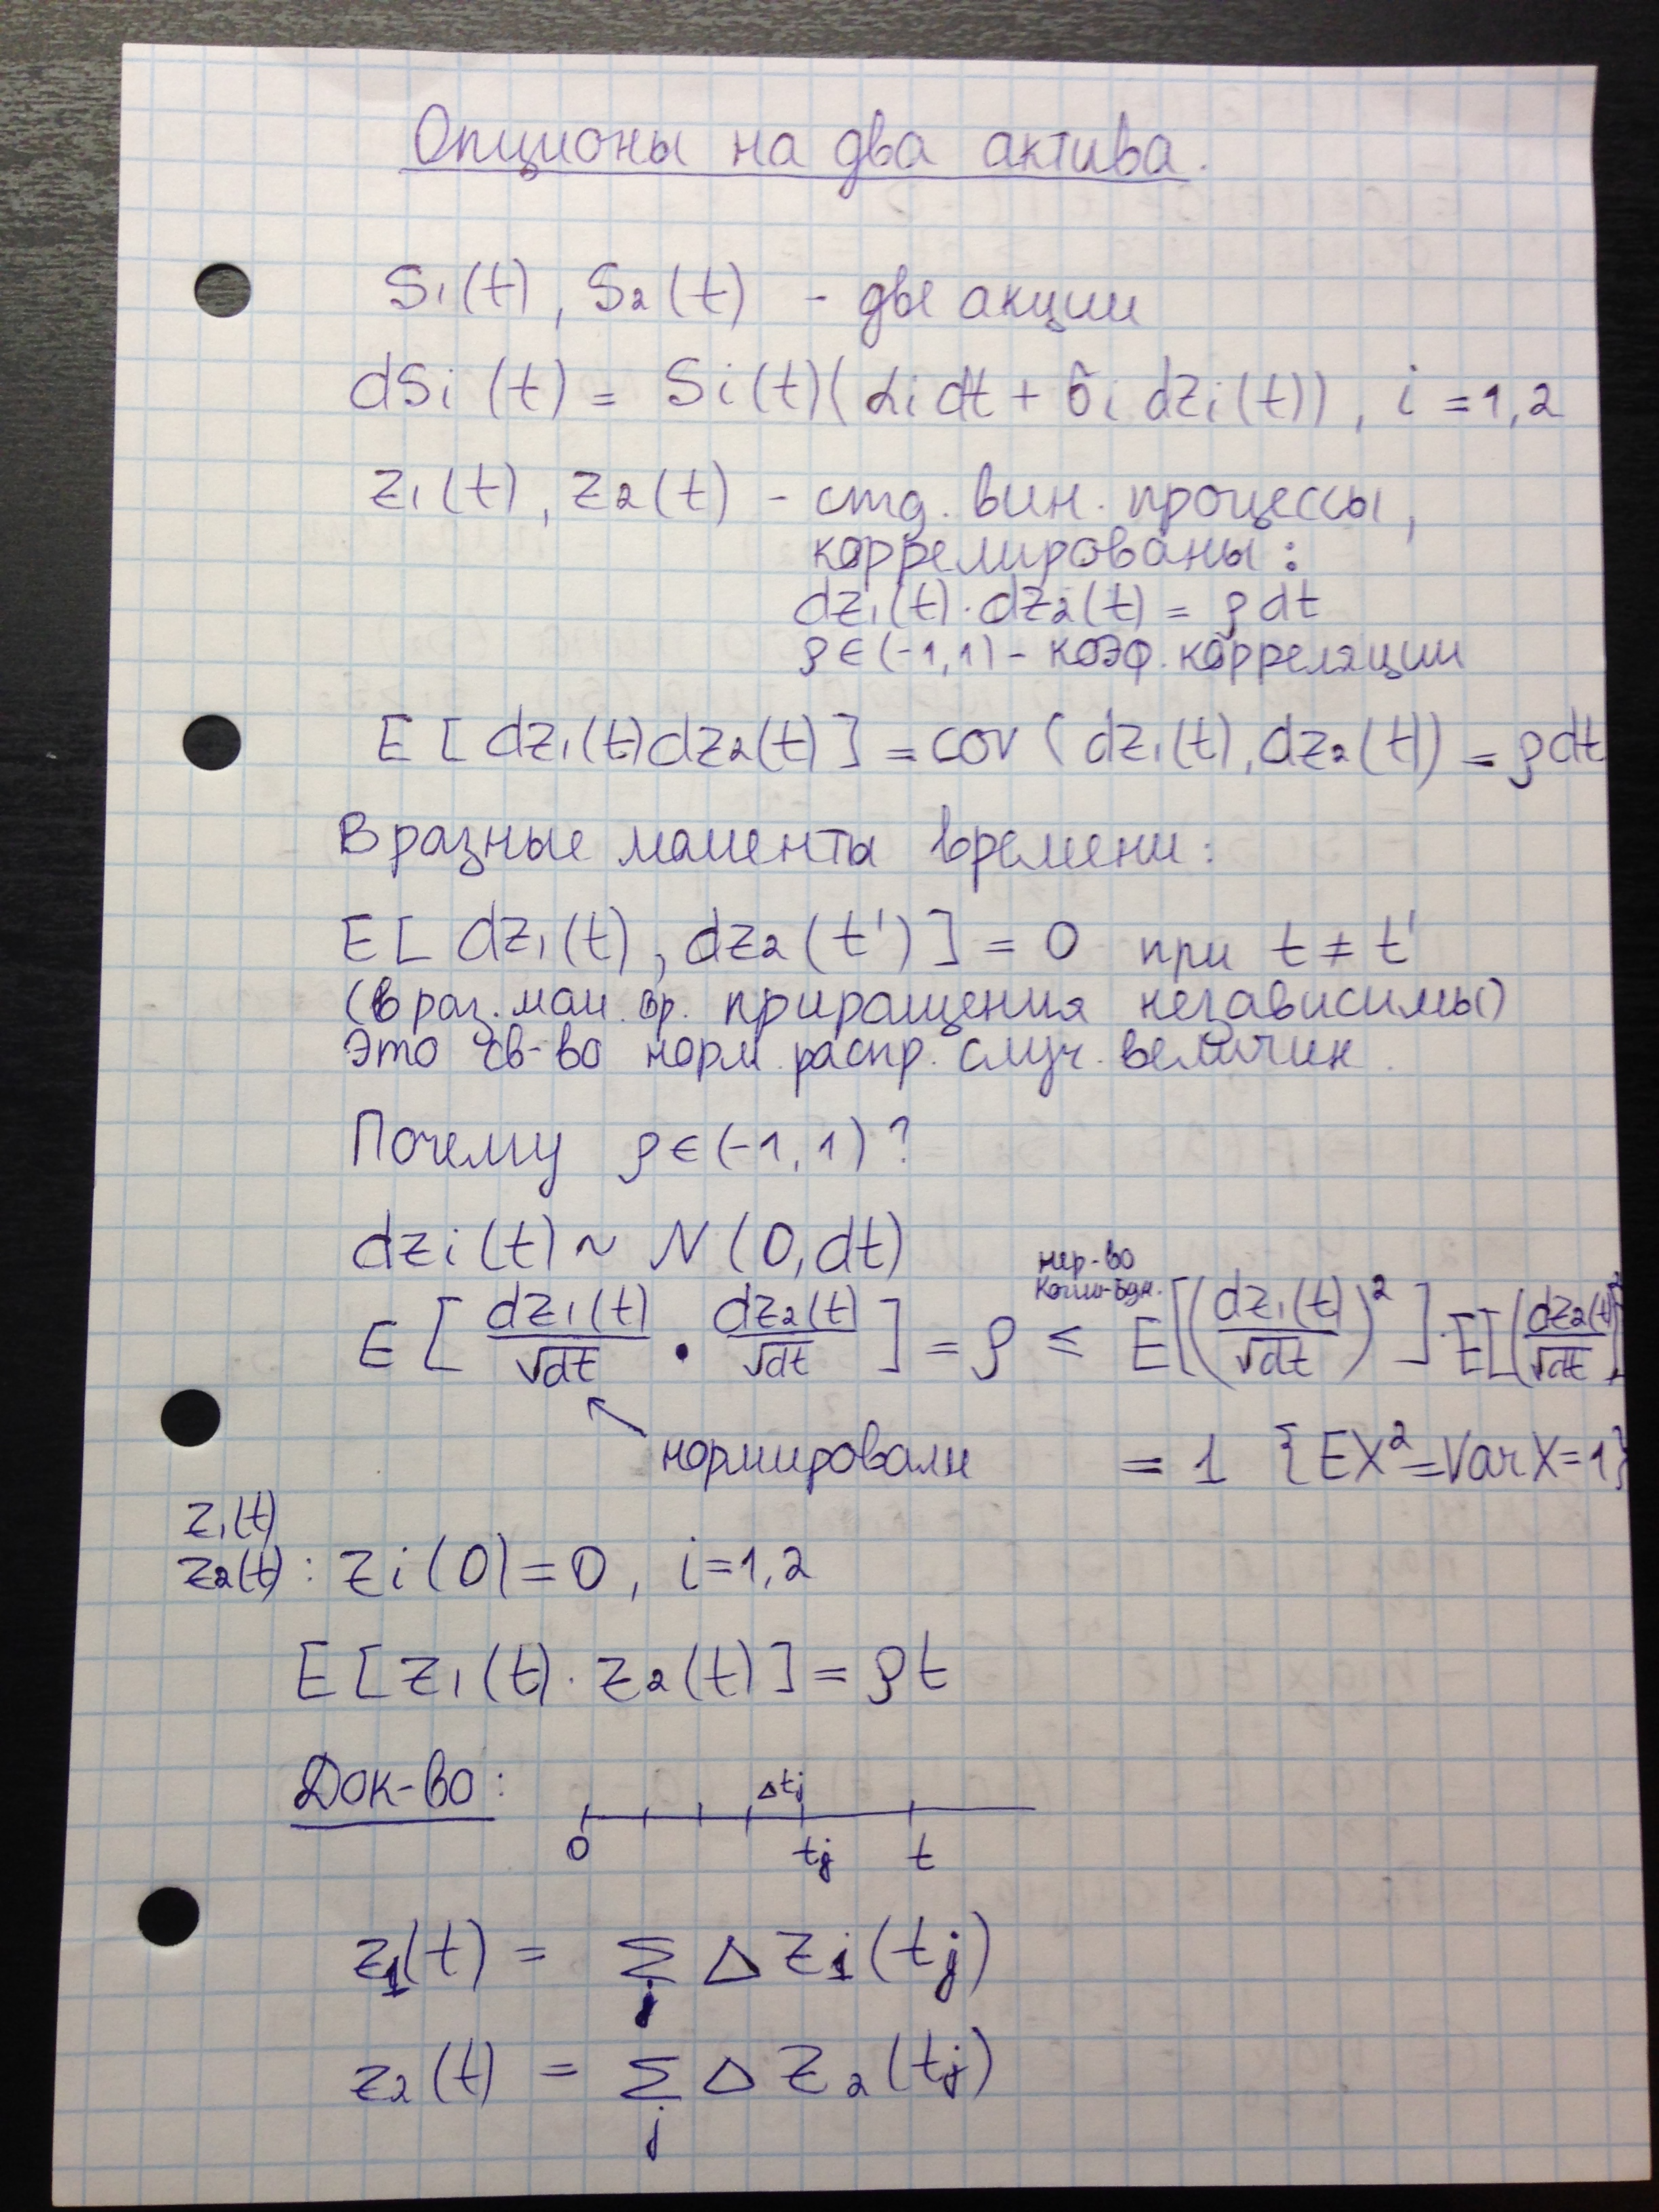 Опционы на два актива.
S₁(t), S₂(t) - две акции
dSᵢ(t) = Sᵢ(t)(αᵢdt + σᵢ dzᵢ(t)), i = 1,2
z₁(t), z₂(t) - станд. вин. процессы,
коррелированы:
dz₁(t)·dz₂(t) = ρdt
ρ∈(-1,1) - коэф. корреляции
E[dz₁(t)dz₂(t)] = cov(dz₁(t), dz₂(t)) = ρdt
В разные моменты времени:
E[dz₁(t), dz₂(t')] = 0 при t ≠ t'
(в раз. мом. вр. приращения независимы)
Это св-во норм. распр. случ. величин.
Почему ρ∈(-1,1)?
dzᵢ(t) ~ N(0,dt)
нер-во
Коши-Бун.
E[dz₁(t)/√dt · dz₂(t)/√dt] = ρ ≤ E[(dz₁(t)/√dt)²]·E[(dz₂(t)/√dt)
нормировали = 1 {EX²=VarX=1}
z₁(t)
z₂(t): zᵢ(0)=0, i=1,2
E[z₁(t)·z₂(t)] = ρt
Док-во:
Δtⱼ
0 tⱼ t
z₁(t) = Σⱼ Δz₁(tⱼ)
z₂(t) = Σⱼ Δz₂(tⱼ)